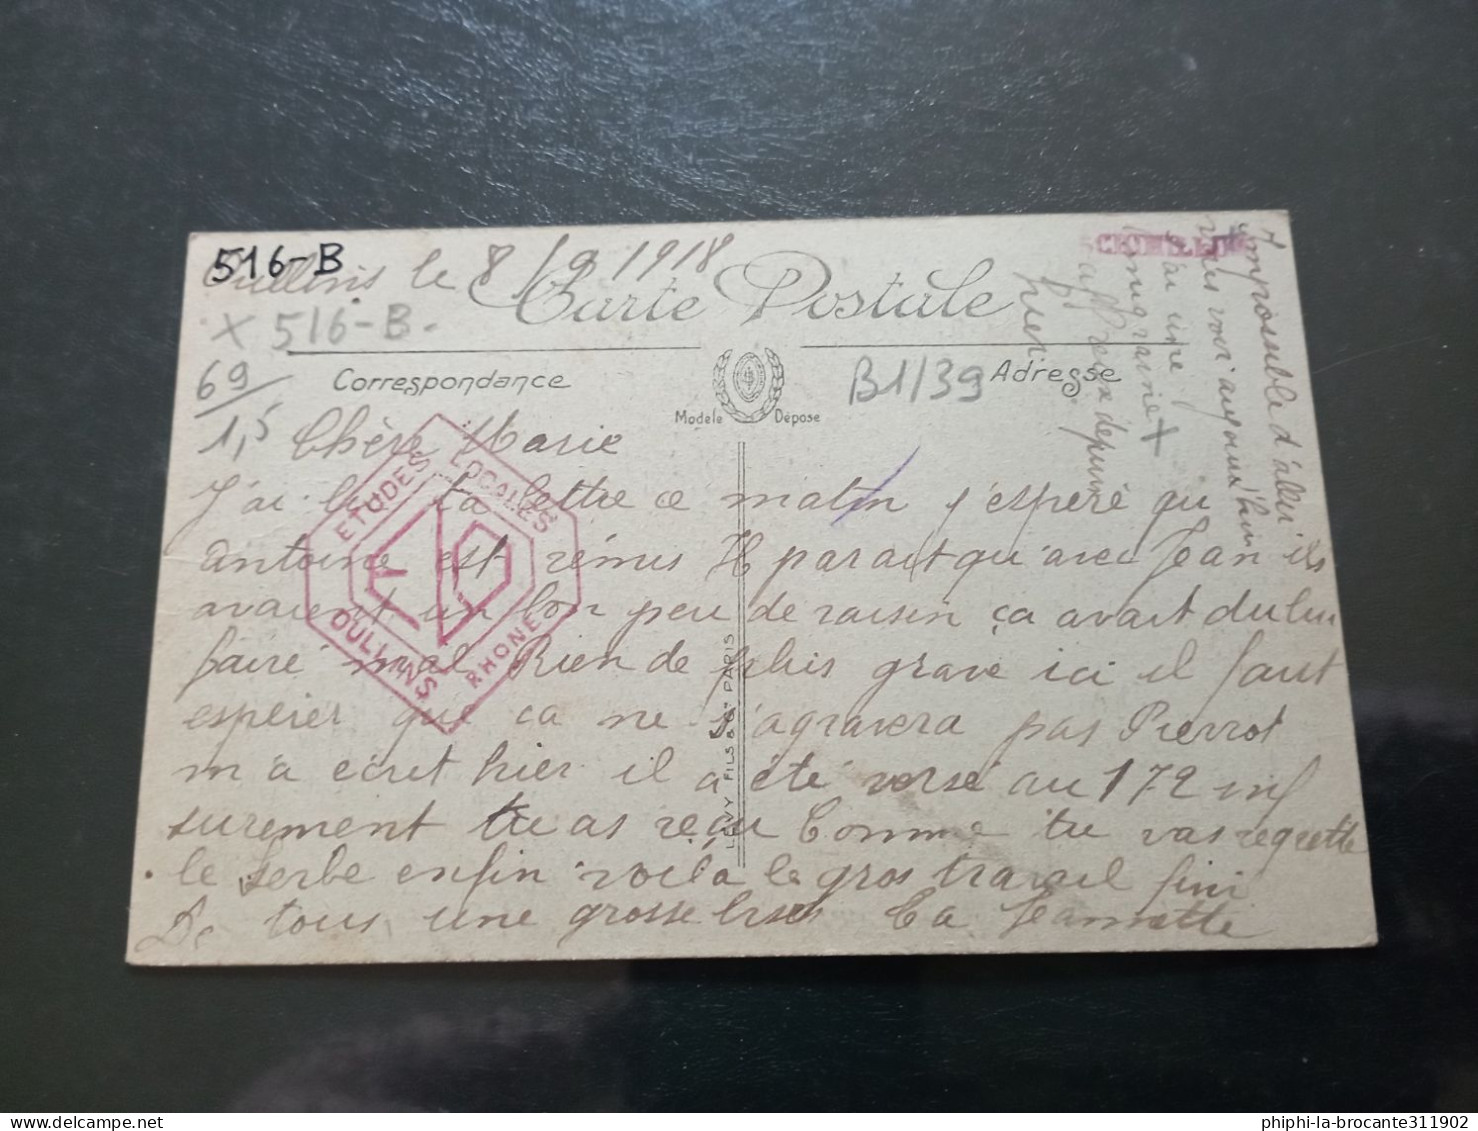 516-B
Oullins le 8/9 1918
Carte Postale
X 516-B.
69
1,5
Correspondance
Modèle Déposé
B1/39
Adresse
Chère Marie
J'ai lu ta lettre ce matin j'espère qu
antoine est rémis Il parait qu'avec Jean ils
avaient un bon peu de raisin ça avait du lui
faire mal Rien de plus grave ici il faut
espérer que ca ne s'agravera pas Pierrot
m'a ecrit hier il a été versé au 172 inf
surement tu as reçu Comme tu vas regretté
le Serbe enfin voila le gros travail fini
De tous une grosse bises Ta Jeannette
Impossuble d'aller
vous voir aujourd'hui
j'ai une
migraine
affreuse depuis
hier
ETUDES LOCALES
OULLINS RHONE
LEVY FILS & Cie PARIS
phiphi-la-brocante311902